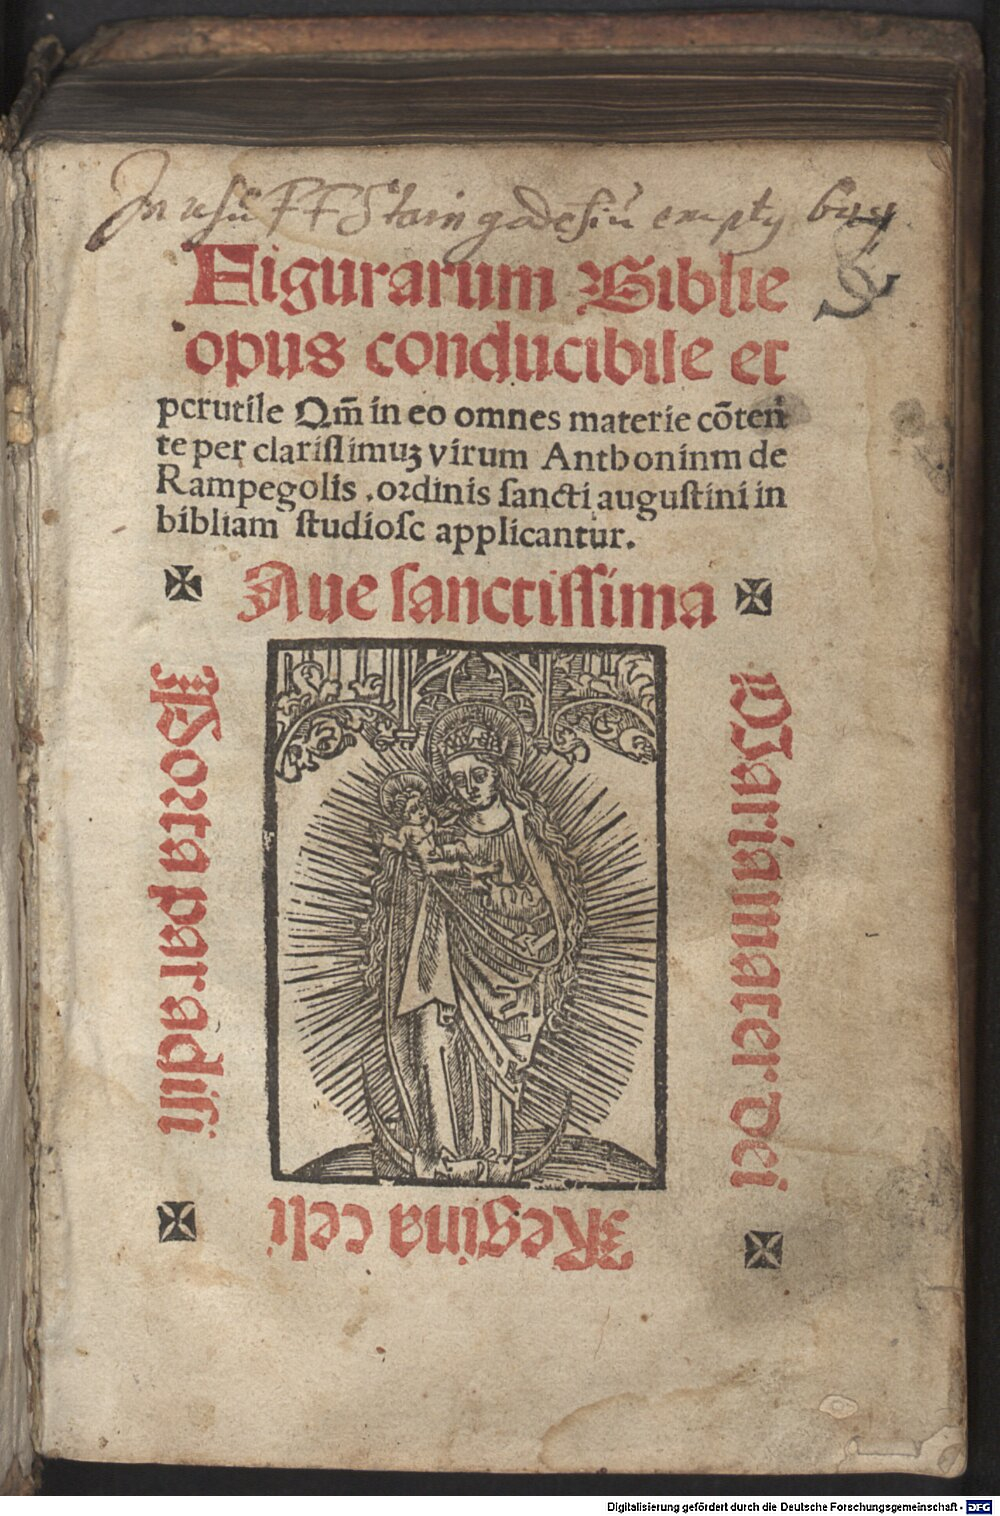 In usū FF Staingadēsiū emptȩ
Figurarum Biblie
opus conducibile et
perutile Qm̄ in eo omnes materie cōten
te per clarissimuʒ virum Anthoninm de
Rampegolis .ordinis sancti augustini in
bibliam studiose applicantur.
Aue sanctissima
Maria mater dei
Regina celi
Porta paradisi
Digitalisierung gefördert durch die Deutsche Forschungsgemeinschaft - DFG